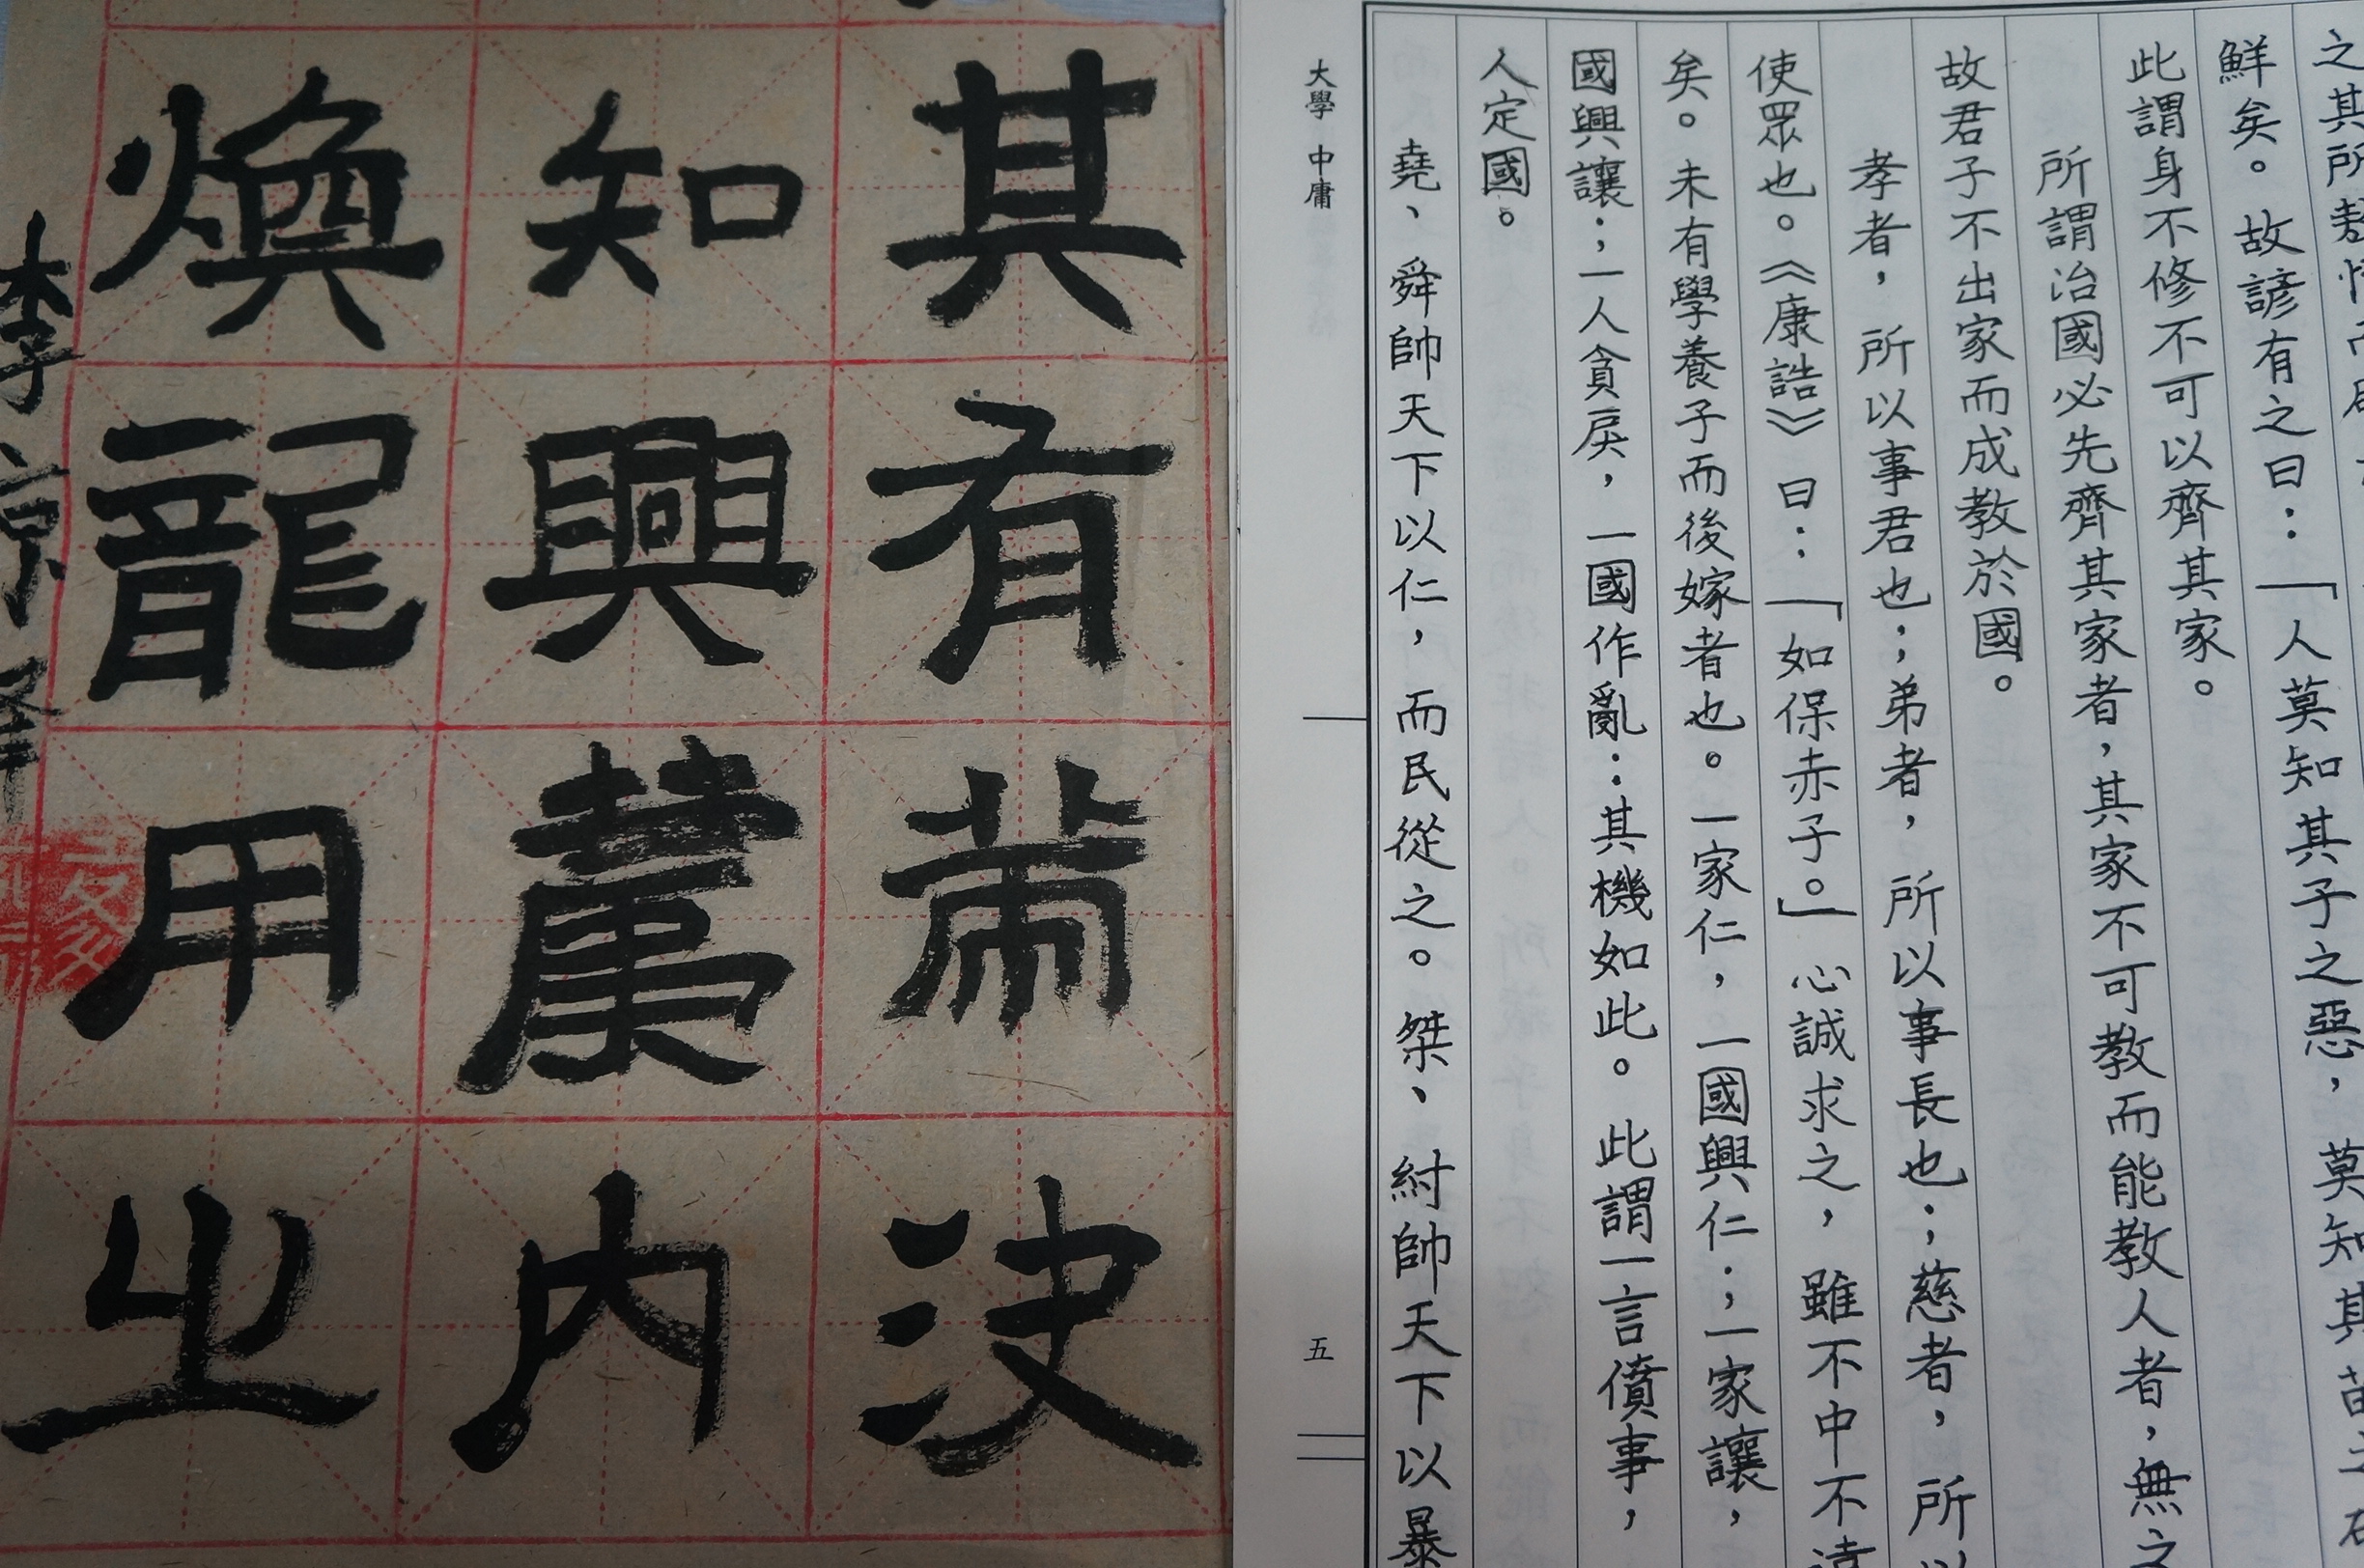 之其所
鮮矣。故諺有之曰：「人莫知其子之惡，莫知其苗之
此謂身不修不可以齊其家。
所謂治國必先齊其家者，其家不可教而能教人者，無之
故君子不出家而成教於國。
孝者，所以事君也；弟者，所以事長也；慈者，所以
使眾也。《康誥》曰：「如保赤子。」心誠求之，雖不中不遠
矣。未有學養子而後嫁者也。一家仁，一國興仁；一家讓，
國興讓；一人貪戾，一國作亂：其機如此。此謂一言僨事，
人定國。
堯、舜帥天下以仁，而民從之。桀、紂帥天下以暴
大學 中庸 五
其有芾決
知興內
煥龍用之
李京